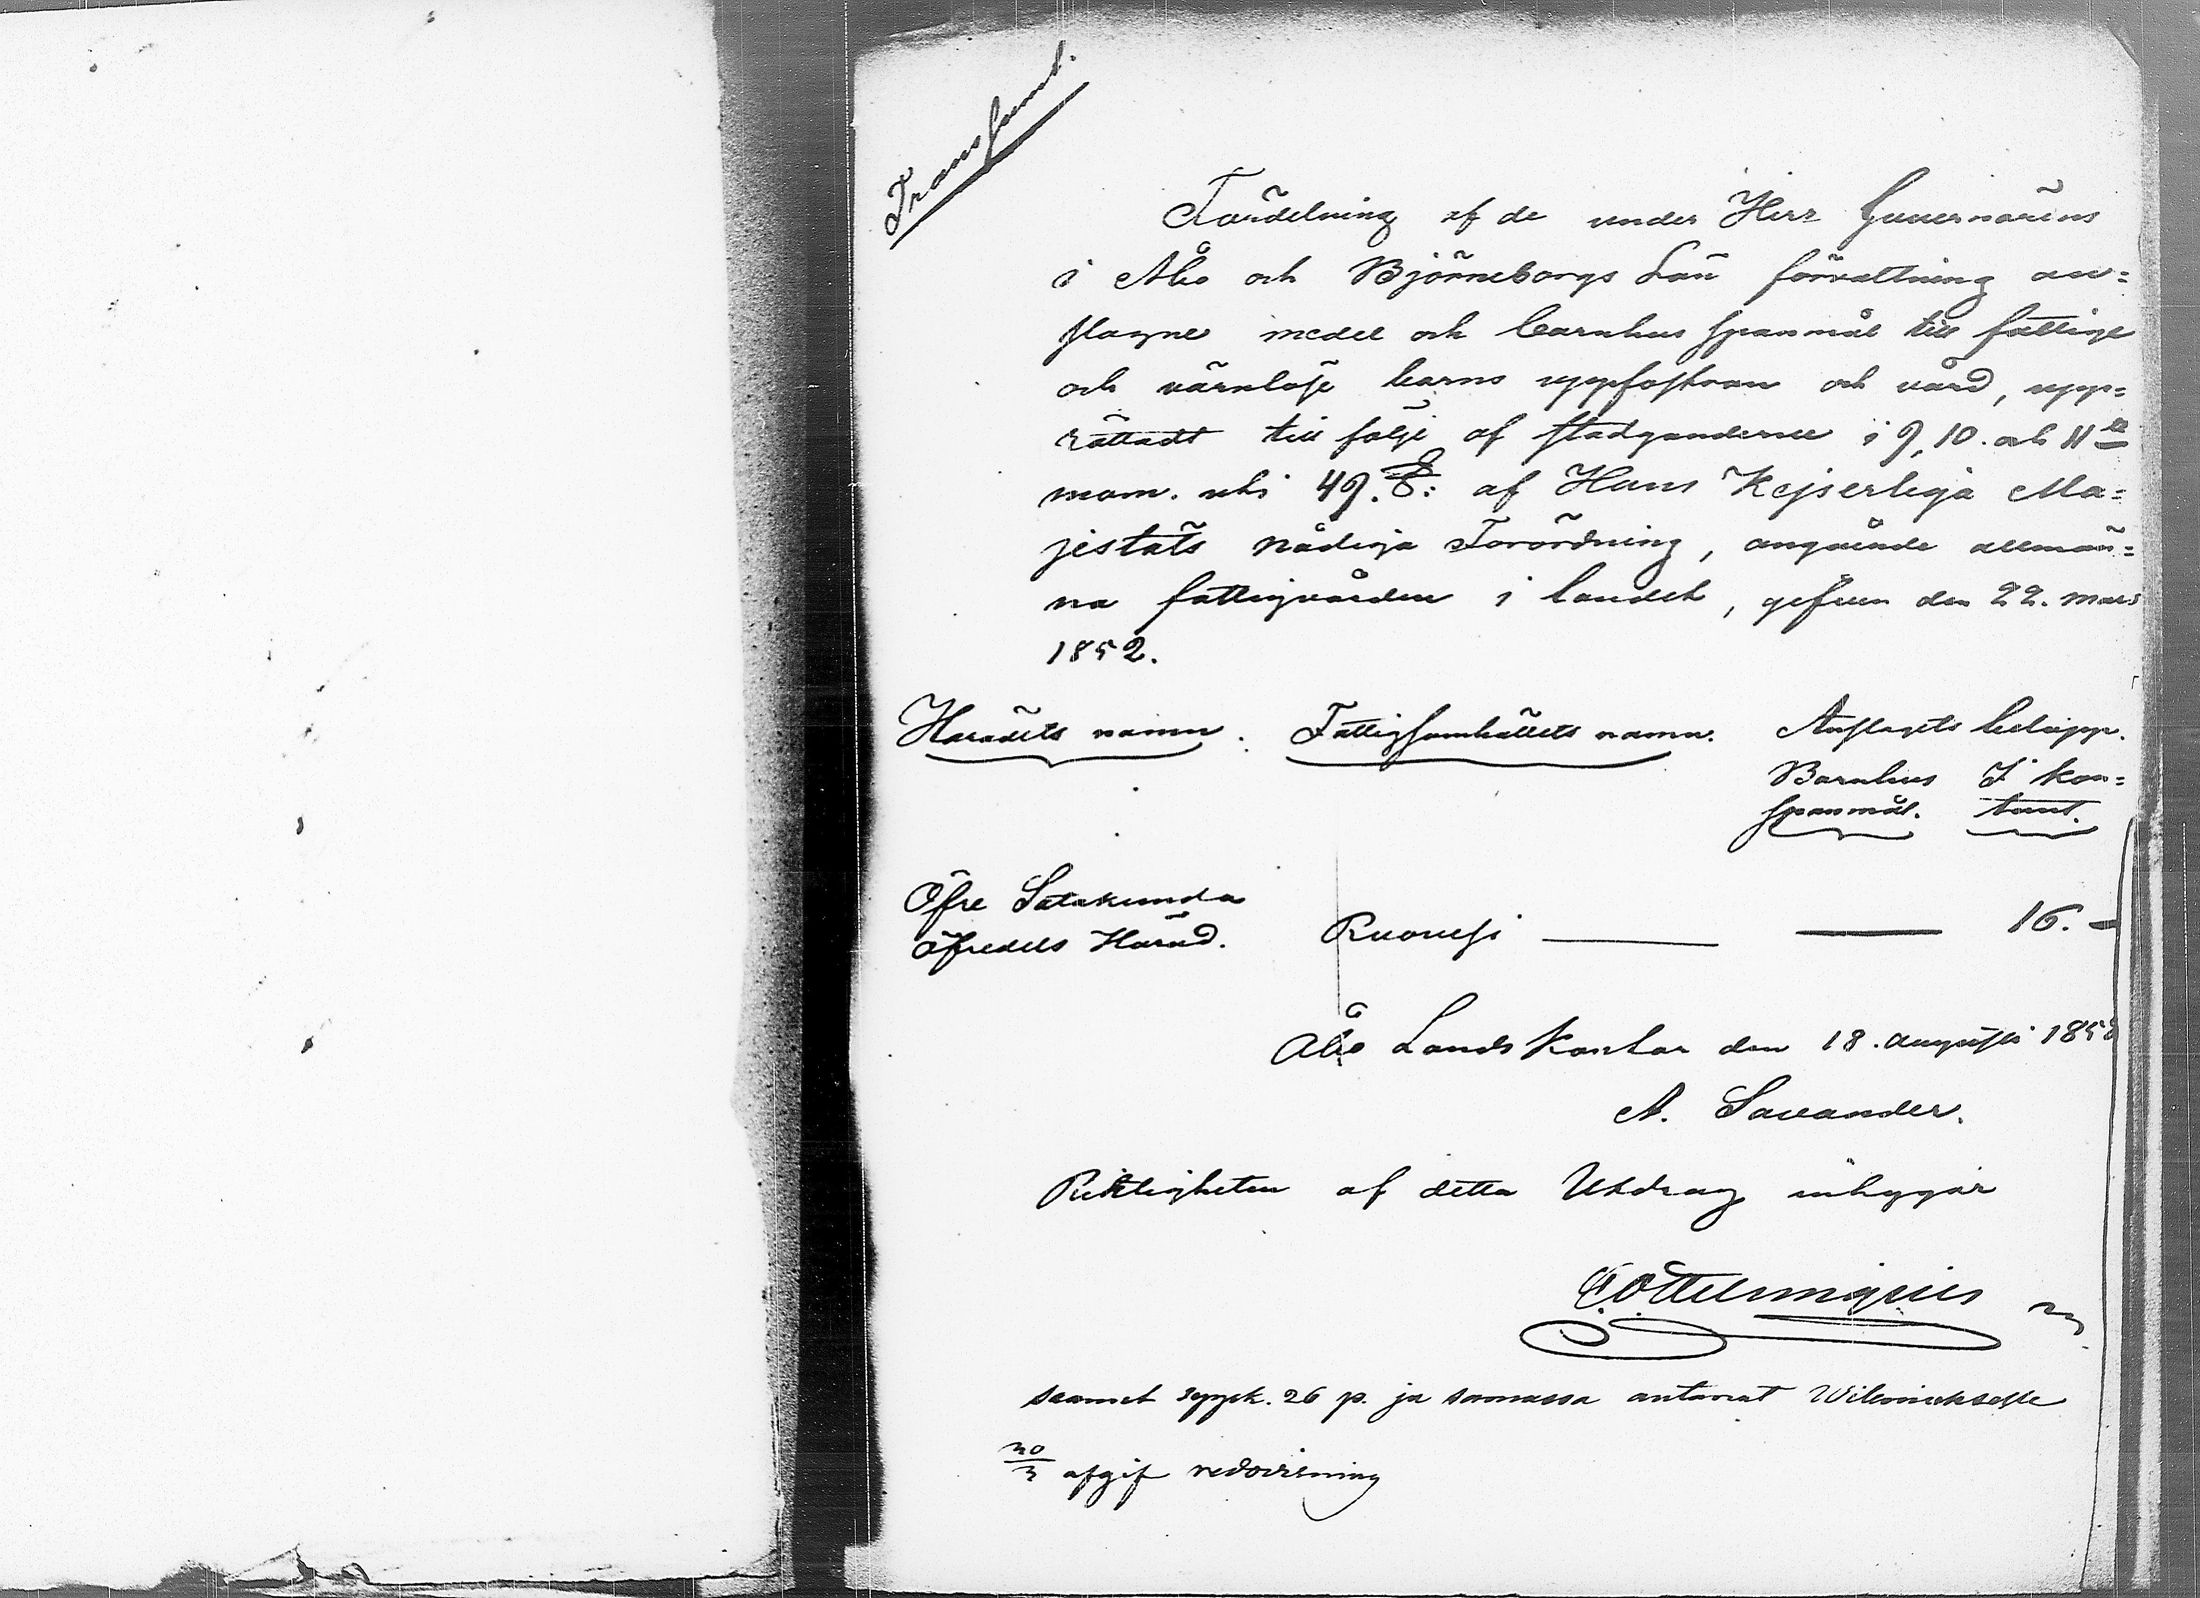 Transsumt.
Fördelning af de under Herr Guvernörens
i Åbo och Björneborgs Län förvaltning an=
slagne medel och barnhus spanmål till fattige
och värnlöse barns uppfostran och vård, upp=
rättadt till följe af stadganderne i 9, 10. och 11te
mom. uti 49. §: af Hans Kejserliga Ma=
jestäts nådiga Förordning, angående allmän=
na fattigvården i landet, gifven den 22. mars
1852.
Häradets namn. Fattigsamhällets namn. Anslagets belopp.
Barnhus I kon=
spanmål. tant.
Öfre Satakunda
öfredels Härad. Ruovesi 16. —
Åbo Lands Kontor den 18. augusti 185
A. Savander.
Riktigheten af detta Utdrag intygar
saanet syysk. 26 p. ja samassa antanut
30/3 afgif redovisning